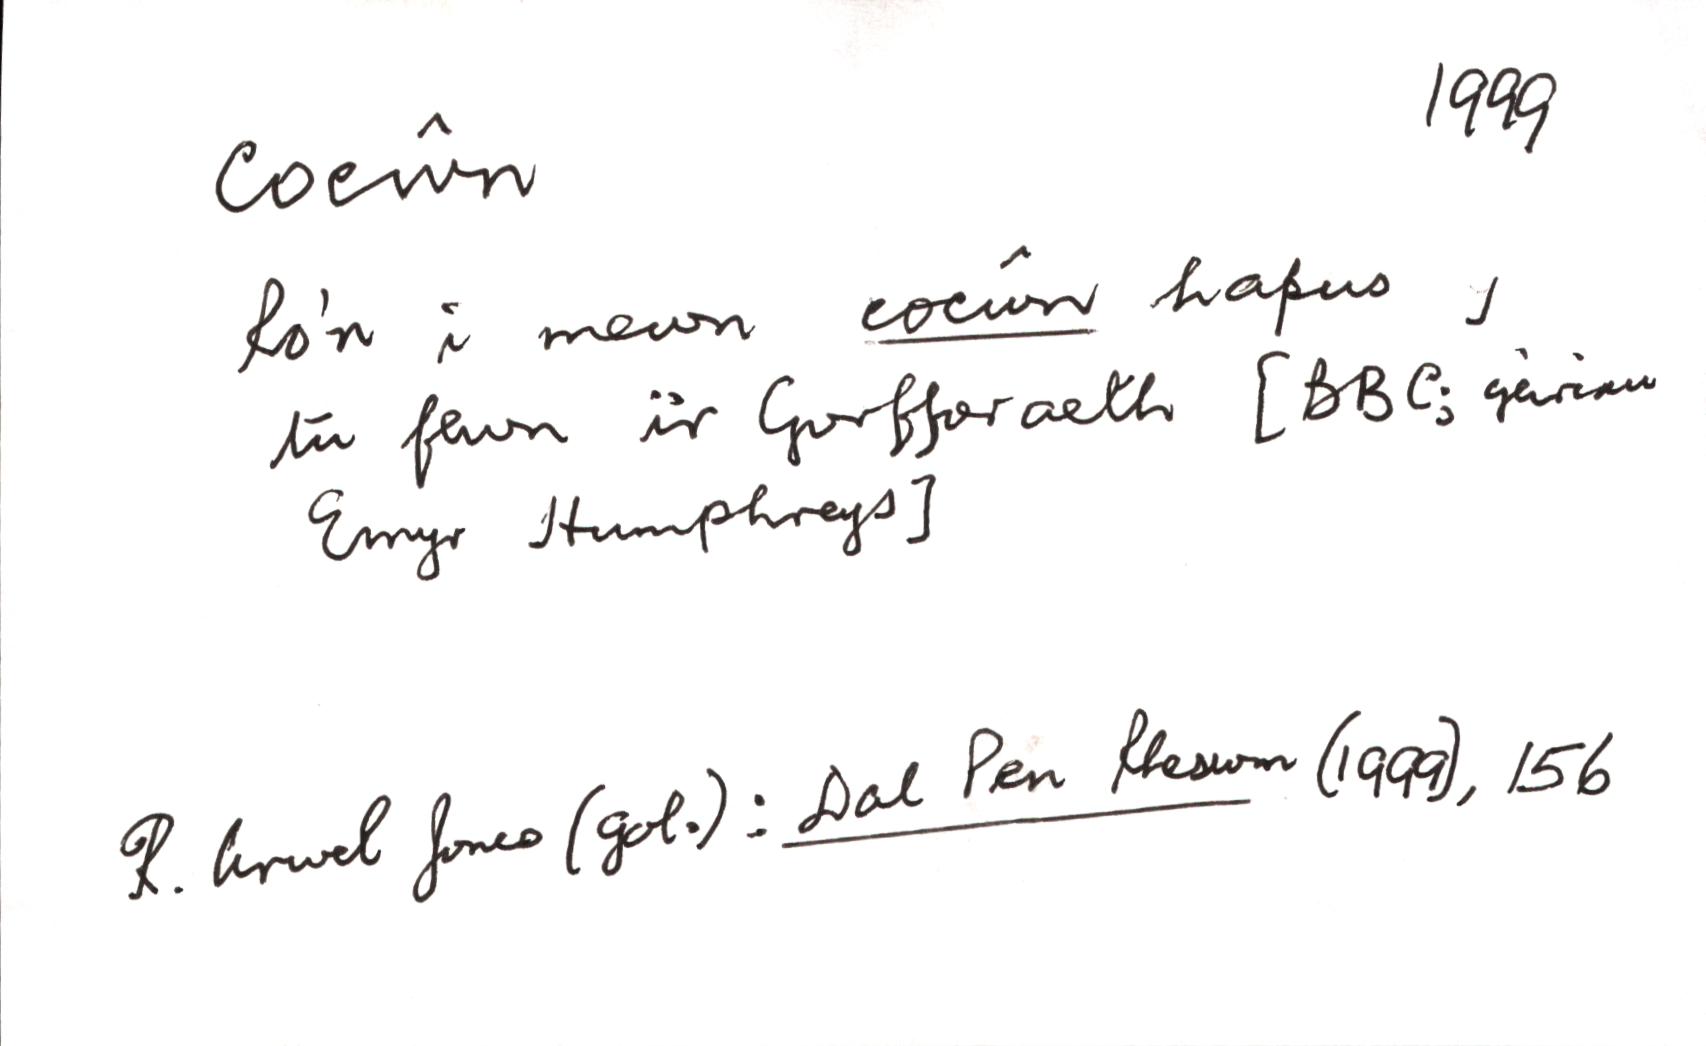 1999
cocŵn
Ro'n i mewn cocŵn hapus y
tu fewn i'r Gorfforaeth [BBC; geiriau
Emyr Humphreys]
R. Arwel Jones (gol.): Dal Pen Rheswm (1999), 156